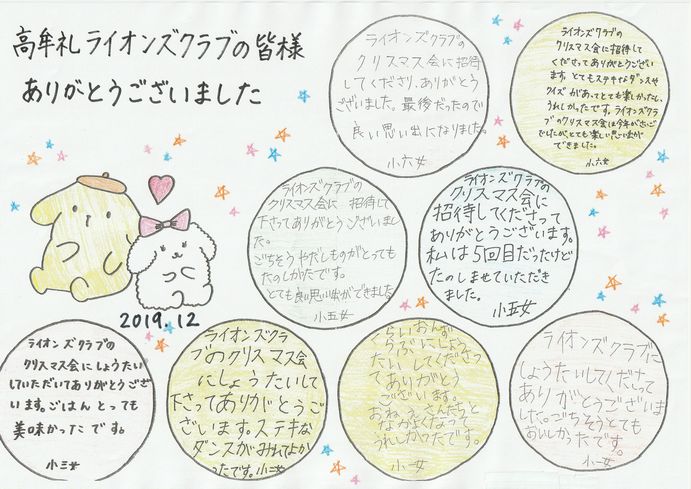 高牟礼ライオンズクラブの皆様
ありがとうございました
ライオンズクラブの
クリスマス会に招待
してくださり、ありがとう
ございました。最後だったので
良い思い出になりました。
小六女
ライオンズクラブの
クリスマス会に招待して
くださってありがとうござい
ます。とてもステキなダンスや
クイズがあってとても楽しかったし、
うれしかったです。ライオンズクラ
ブのクリスマス会は今年がさいご
でしたが、とても楽しい思い出が
できました。
小六女
ライオンズクラブの
クリスマス会に 招待して
下さってありがとうございまし
た。
ごちそうやだしものがとっても
たのしかったです。
とても良い思い出ができました
小五女
ライオンズクラブの
クリスマス会に
招待してくださって
ありがとうございます。
私は5回目だったけど
たのしませていただき
ました。
小五女
2019.12
ライオンズクラブの
クリスマス会にしょうたい
していただいてありがとうござい
います。ごはん とっても
美味かったです。
小三女
ライオンズクラ
ブのクリスマス会
にしょうたいして
下さってありがとうご
ざいます。ステキな
ダンスがみれてよか
ったです。小二女
らいおんず
くらぶにしょう
たいしてくださっ
てありがとう
ございます。
おねぇさんたちと
なかよくなって
うれしかったです。
小一女
ライオンズクラブに
しょうたいしてくださって
ありがとうございま
した。ごちそうとても
おいしかったです。
小一女